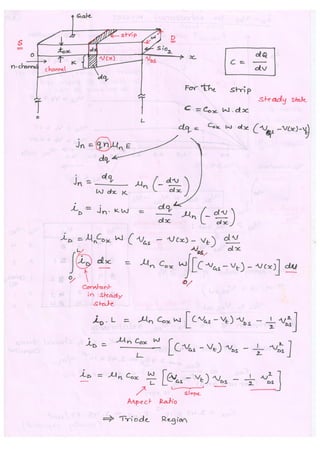 Gate
S
D
strip
tox
dx
w
SiO2
V(x)
VDS
x
n-channel
channel
K
dq
0
L
C = dQ / dV
For the strip
steady state
C = Cox W.dx
dq = Cox W dx (VGS - V(x) - Vt)
jn = qn μn E
dq
jn = dq / (W dx K) μn (- dV/dx)
iD = jn. KW = dq/dx μn (- dV/dx)
iD = μn Cox W (VGS - V(x) - Vt) dV/dx
∫0^L iD dx = μn Cox W ∫0^VDS [(VGS - Vt) - V(x)] dV
Constant
in steady
state
iD. L = μn Cox W [(VGS - Vt) VDS - 1/2 VDS²]
iD = μn Cox W / L [(VGS - Vt) VDS - 1/2 VDS²]
iD = μn Cox W/L [(VGS - Vt) VDS - 1/2 VDS²]
slope
Aspect Ratio
⇒ Triode Region